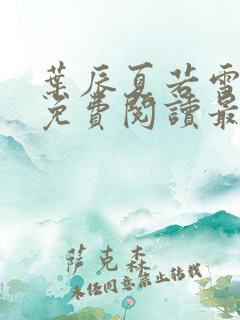 葉辰夏若雪
免費閱讀最
萨克森
未经同意禁止转载